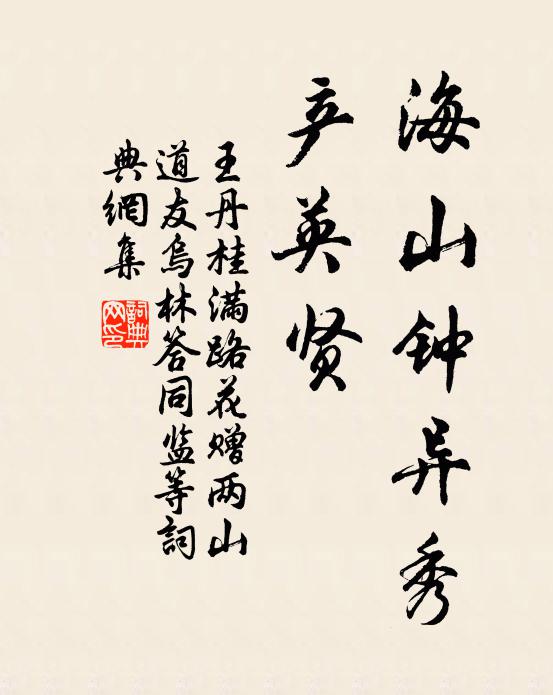 海山钟异秀
产英贤
王丹桂满路花赠两山
道友乌林答同监等詞
典網集
詞典
网印